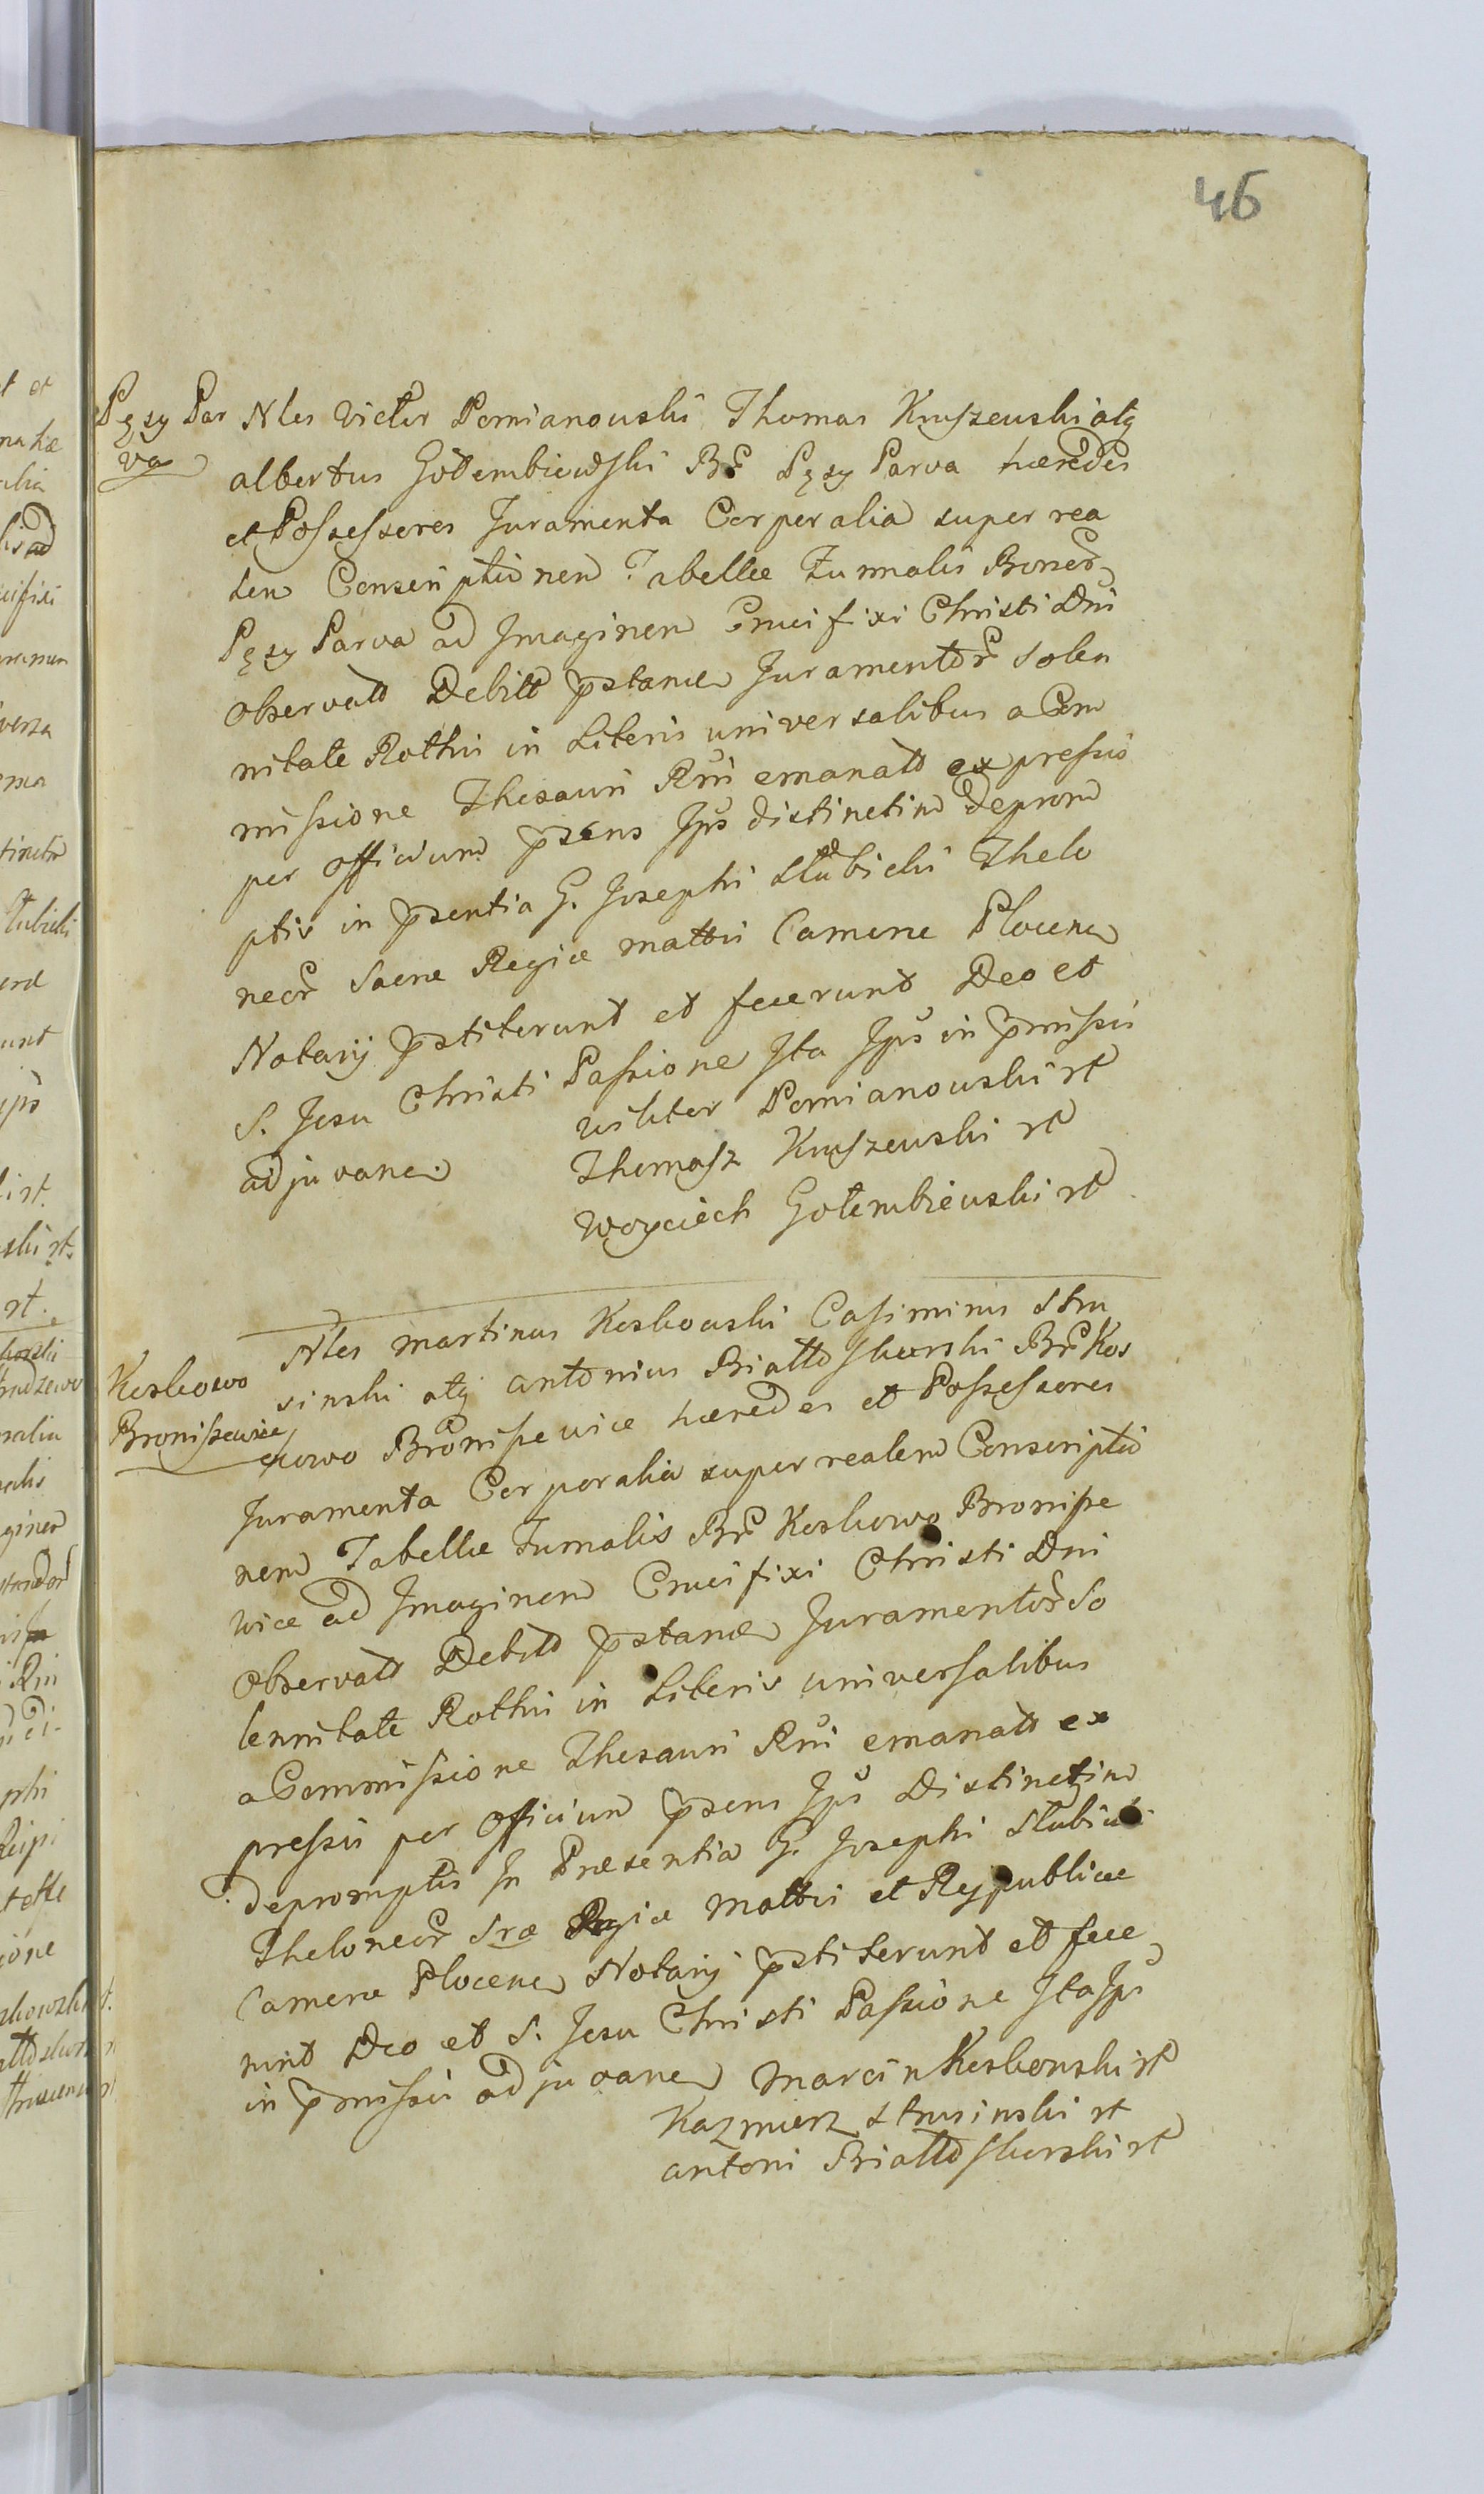 46
Pęsy Par
va
Nles Victor Pomianowski Thomas Kruszewski atq
albertus Gołembiewski Br Pęsy Parva hæredes
et Possessores Juramenta Corporalia super rea
lem Conscriptionem Tabellæ Fumalis Bonor
Pęsy Parva ad Imaginem Crucifixi Christi Dni
observatt Debitt pstanda Juramentor solen
nitate Rothis in Literis universalibus a Com
missione Thesauri Rni emanatt expressis
per officium psens Ips distinctim deprom
ptis in psentia G. Josephi Słubicki Thelo
neor Sacræ Regiæ mattis Cameræ Plocen
Notarij pstiterunt et fecerunt Deo et
S. Jesu Christi Passione Ita Ips in pmissis
adjuvane
wiktor Pomianowski rt
Thomasz Kruszewski rt
Woyciech Gołembiewski rt
Koskowo
Broniszewice
Nles martinus Koskowski Casimirus Stru
sinski atq antonius Białłoskorski Br Kos
kowo Broniszewice hæredes et Possessores
Juramenta Corporalia super realem Conscriptio
nem Tabellæ Fumalis Br Koskowo Bronisze
wice ad Imaginem Crucifixi Christi Dni
Observatt Debitt pstanda Juramentor So
lennitate Rothis in Literis universalibus
a Commissione Thesauri Rni emanatt ex
pressis per Officium psens Ips Distinctim
depromptis In Præsentia G. Josephi Słubicki
Theloneor Sræ Regiæ Mattis et Reypublicæ
Cameræ Plocen Notarij pstiterunt et fece
runt Deo et S. Jesu Christi Passione Ita Ips
in pmissis adjuvane Marcin Koskowski rt
Kazmierz Strusinski rt
antoni Białłoskorski rt